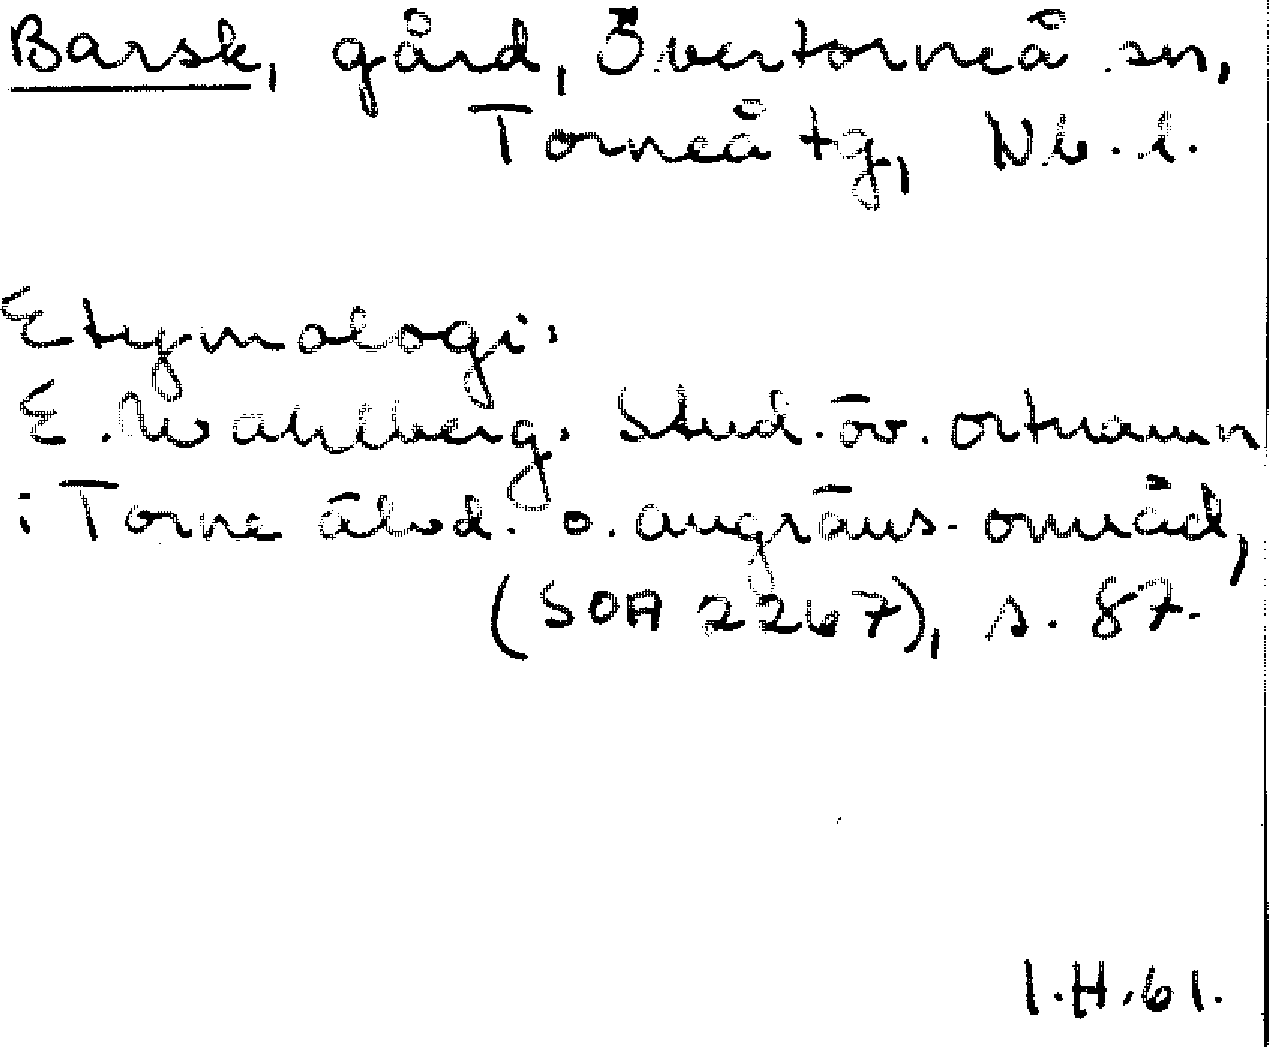 Barsk, gård, Övertorneå sn,
Torneå tg, Nb. l.
Etymologi:
E. Wahlberg. Stud. öv. ortnamn
i Torne älvd. o. angräns. områd,
(SOA 2267), s. 87.
I.H. 61.